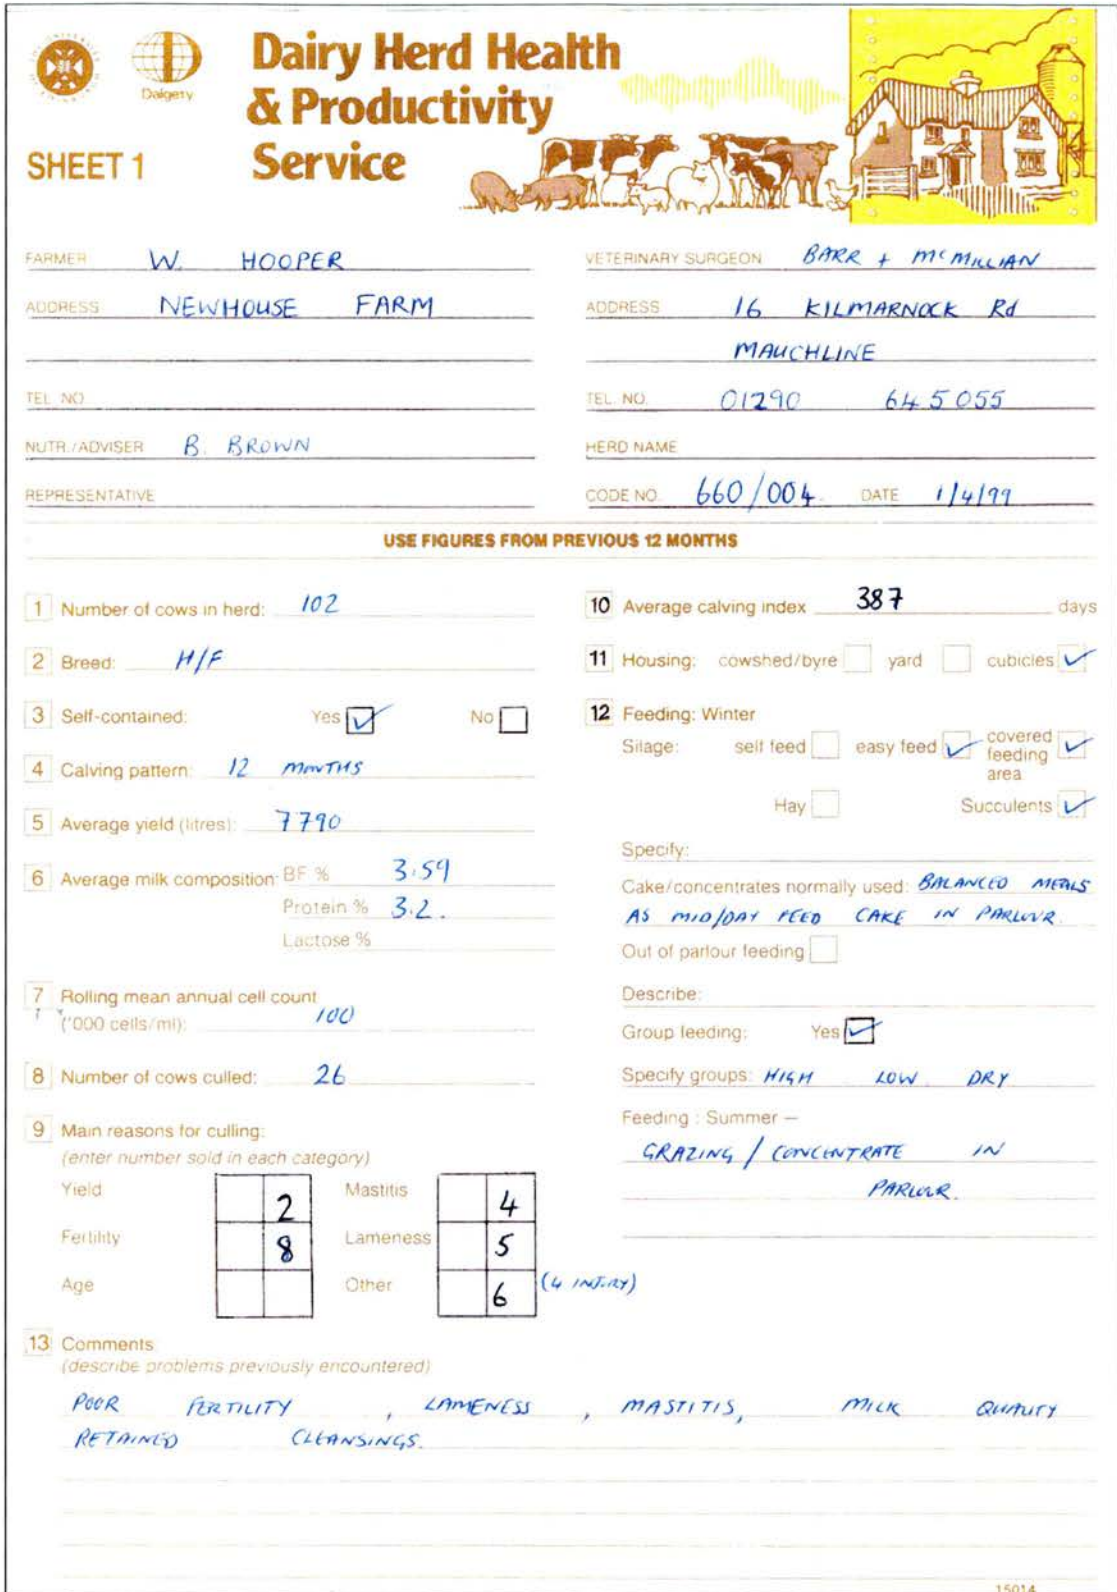 Dalgety
Dairy Herd Health
& Productivity
Service
SHEET 1
FARMER W. HOOPER
ADDRESS NEWHOUSE FARM
TEL. NO.
NUTR./ADVISER B. BROWN
REPRESENTATIVE
VETERINARY SURGEON BARR + McMILLIAN
ADDRESS 16 KILMARNOCK Rd
MAUCHLINE
TEL. NO. 01290 645055
HERD NAME
CODE NO. 660/004. DATE 1/4/99
USE FIGURES FROM PREVIOUS 12 MONTHS
1 Number of cows in herd: 102
2 Breed: H/F
3 Self-contained: Yes ✓ No
4 Calving pattern: 12 MONTHS
5 Average yield (litres): 7790
6 Average milk composition: BF % 3.59
Protein % 3.2.
Lactose %
7 Rolling mean annual cell count
('000 cells/ml): 100
8 Number of cows culled: 26
9 Main reasons for culling:
(enter number sold in each category)
Yield 2 Mastitis 4
Fertility 8 Lameness 5
Age Other 6 (4 INJURY)
10 Average calving index 387 days
11 Housing: cowshed/byre yard cubicles ✓
12 Feeding: Winter
Silage: self feed easy feed ✓ covered feeding area ✓
Hay Succulents ✓
Specify:
Cake/concentrates normally used: BALANCED MEALS
AS MID/DAY FEED CAKE IN PARLOUR.
Out of parlour feeding
Describe:
Group feeding: Yes ✓
Specify groups: HIGH LOW DRY
Feeding : Summer —
GRAZING / CONCENTRATE IN
PARLOUR.
13 Comments
(describe problems previously encountered)
POOR FERTILITY , LAMENESS , MASTITIS, MILK QUALITY
RETAINED CLEANSINGS.
15014